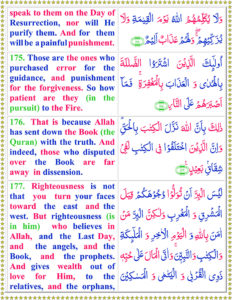 speak to them on the Day of
Resurrection, nor will He
purify them. And for them
will be a painful punishment.
وَلَا يُكَلِّمُهُمُ اللّٰهُ يَوْمَ الْقِيٰمَةِ وَلَا
يُزَكِّيْهِمْ وَلَهُمْ عَذَابٌ اَلِيْمٌ
175. Those are the ones who
purchased error for the
guidance, and punishment
for the forgiveness. So how
patient are they (in the
pursuit) to the Fire.
اُولٰٓئِكَ الَّذِيْنَ اشْتَرَوُا الضَّلٰلَةَ
بِالْهُدٰى وَالْعَذَابَ بِالْمَغْفِرَةِ فَمَآ
اَصْبَرَهُمْ عَلَى النَّارِ
176. That is because Allah
has sent down the Book (the
Quran) with the truth. And
indeed, those who disputed
over the Book are far
away in dissension.
ذٰلِكَ بِاَنَّ اللّٰهَ نَزَّلَ الْكِتٰبَ بِالْحَقِّ
وَاِنَّ الَّذِيْنَ اخْتَلَفُوْا فِى الْكِتٰبِ لَفِىْ
شِقَاقٍ بَعِيْدٍ
177. Righteousness is not
that you turn your faces
toward the east and the
west. But righteousness (is
in him) who believes in
Allah, and the Last Day,
and the angels, and the
Book, and the prophets.
And gives wealth out of
love for Him, to the
relatives, and the orphans,
لَيْسَ الْبِرَّ اَنْ تُوَلُّوْا وُجُوْهَكُمْ قِبَلَ
الْمَشْرِقِ وَالْمَغْرِبِ وَلٰكِنَّ الْبِرَّ مَنْ
اٰمَنَ بِاللّٰهِ وَالْيَوْمِ الْاٰخِرِ وَالْمَلٰٓئِكَةِ
وَالْكِتٰبِ وَالنَّبِيّٖنَ وَاٰتَى الْمَالَ عَلٰى حُبِّهٖ
ذَوِى الْقُرْبٰى وَالْيَتٰمٰى وَالْمَسٰكِيْنَ